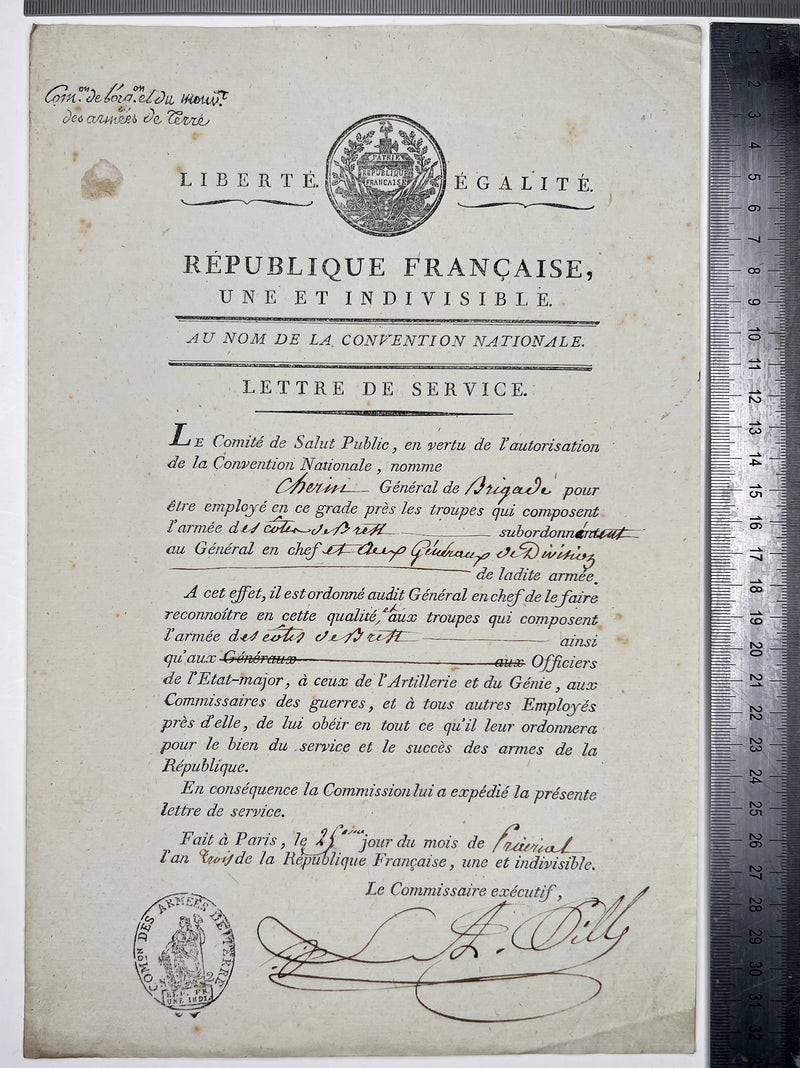 Com.on de l'org.on et du mouv.t
des armées de Terre
LIBERTÉ. ÉGALITÉ.
PATRIE
RÉPUBLIQUE
FRANCAISE
RÉPUBLIQUE FRANÇAISE,
UNE ET INDIVISIBLE.
AU NOM DE LA CONVENTION NATIONALE.
LETTRE DE SERVICE.
LE Comité de Salut Public, en vertu de l'autorisation
de la Convention Nationale, nomme
Cherin Général de Brigade pour
être employé en ce grade près les troupes qui composent
l'armée des côtes de Brest subordonnément
au Général en chef et aux Généraux de Division
de ladite armée.
A cet effet, il est ordonné audit Général en chef de le faire
reconnoître en cette qualité, et aux troupes qui composent
l'armée des côtes de Brest ainsi
qu'aux Généraux aux Officiers
de l'Etat-major, à ceux de l'Artillerie et du Génie, aux
Commissaires des guerres, et à tous autres Employés
près d'elle, de lui obéir en tout ce qu'il leur ordonnera
pour le bien du service et le succès des armes de la
République.
En conséquence la Commission lui a expédié la présente
lettre de service.
Fait à Paris, le 25ème jour du mois de Prairial
l'an trois de la République Française, une et indivisible.
Le Commissaire exécutif,
L. A. Pille
COM.on DES ARMÉES DE TERRE
2
RÉP. FR.
UNE INDI.
1 2 3 4 5 6 7 8 9 10 11 12 13 14 15 16 17 18 19 20 21 22 23 24 25 26 27 28 29 30 31 32